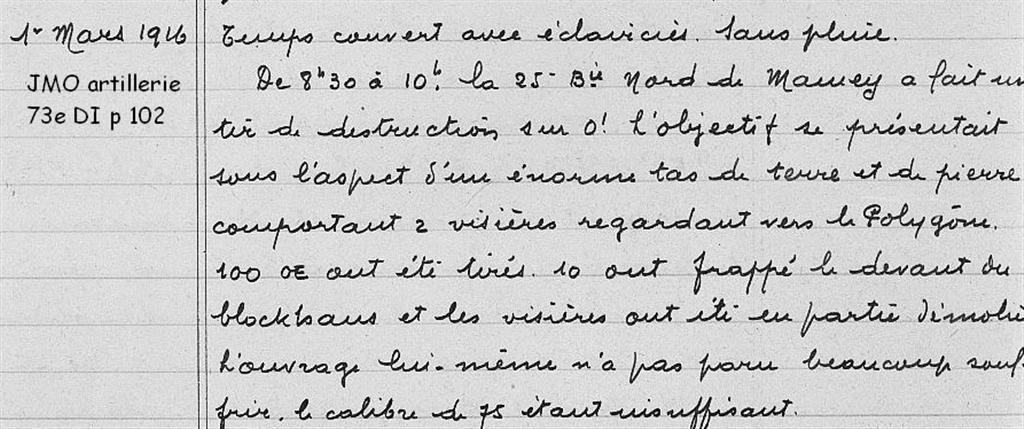 1er Mars 1916 Temps couvert avec éclaircies. Sans pluie.
JMO artillerie
73e DI p 102
De 8h30 à 10h. la 25e Bie Nord de Mamey a fait un
tir de destruction sur O! L'objectif se présentait
sous l'aspect d'un énorme tas de terre et de pierre
comportant 2 visières regardant vers le Polygône.
100 OE ont été tirés. 10 ont frappé le devant du
blockhaus et les visières ont été en partie démolie
L'ouvrage lui-même n'a pas paru beaucoup souf-
frir, le calibre de 75 étant insuffisant.